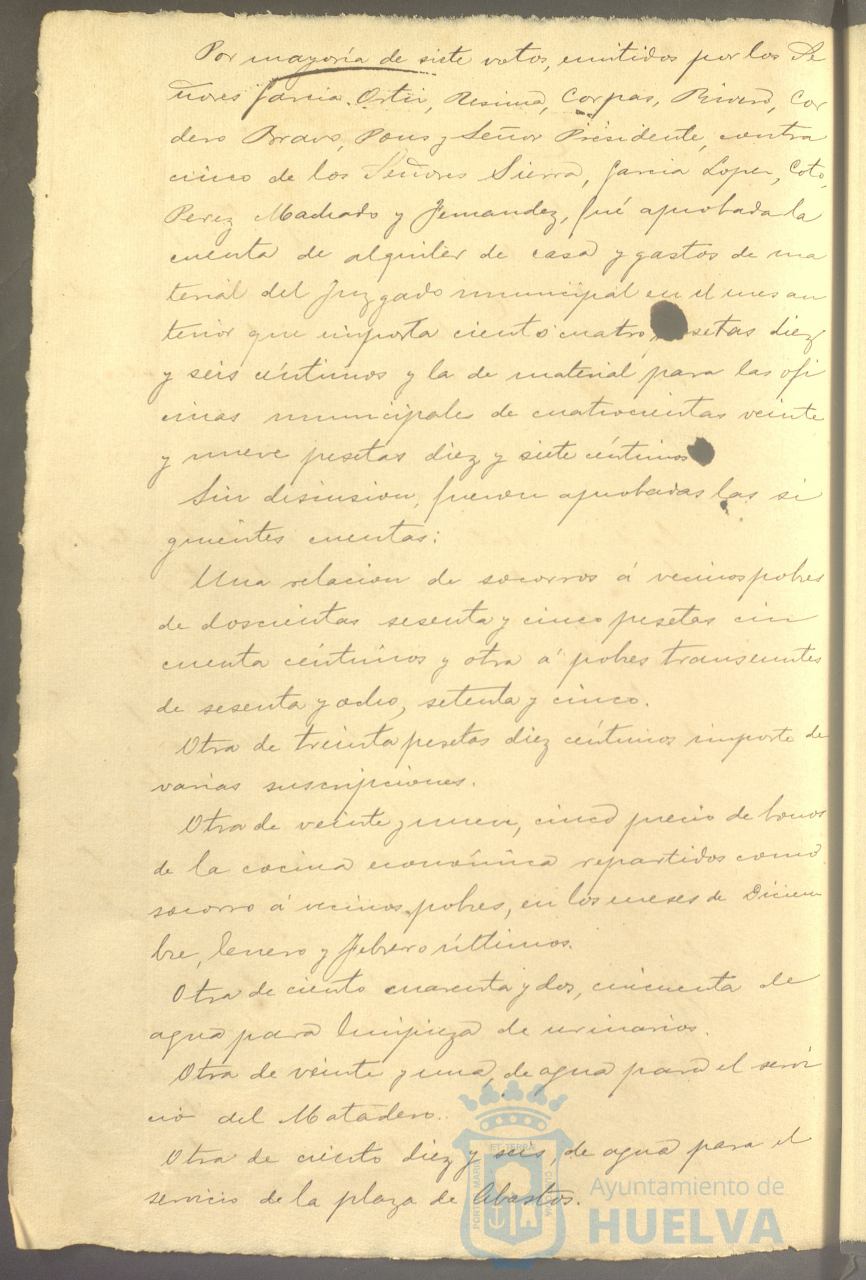 Por mayoría de siete votos, emitidos por los Se
ñores Garcia Ortiz, Resina, Corpas, Rivero, Cor
dero Bravo, Pons y Señor Presidente, contra
cinco de los Señores Sierra, Garcia Lopez, Coto,
Perez Machado y Fernandez, fué aprobada la
cuenta de alquiler de casa y gastos de ma
terial del Juzgado municipal en el mes an
terior que importa ciento cuatro setas diez
y seis céntimos y la de material para las ofi
cinas municipales de cuatrocientas veinte
y nueve pesetas diez y siete céntimos
Sin discusion, fueron aprobadas las si
guientes cuentas:
Una relacion de socorros á vecinos pobres
de doscientas sesenta y cinco pesetas cin
cuenta céntimos y otra á pobres transeuntes
de sesenta y ocho, setenta y cinco.
Otra de treinta pesetas diez céntimos importe de
varias suscripciones.
Otra de veinte y nueve, cinco precio de bonos
de la cocina económica repartidos como
socorro á vecinos pobres, en los meses de Diciem
bre, Enero y Febrero últimos.
Otra de ciento cuarenta y dos, cincuenta de
agua para limpieza de urinarios.
Otra de veinte y una, de agua para el servi
cio del Matadero.
Otra de ciento diez y seis, de agua para el
servicio de la plaza de Abastos.
Ayuntamiento de
HUELVA